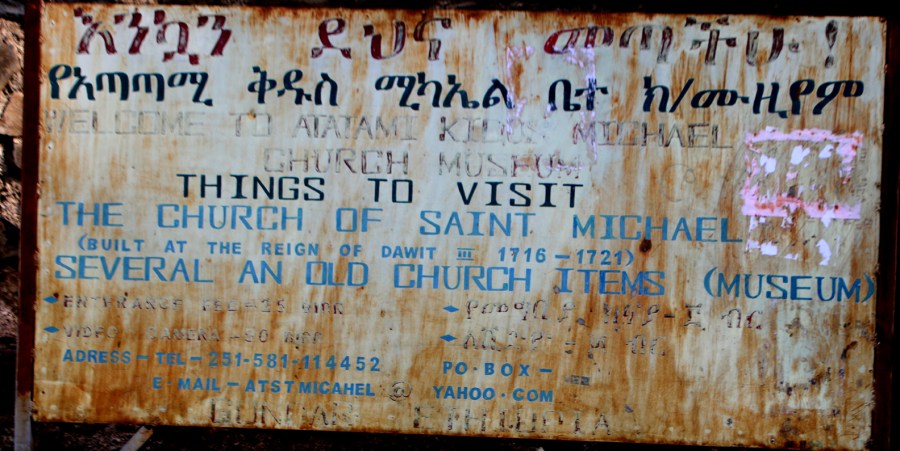 እንኳን ደህና መጣችሁ!
የአጣጣሚ ቅዱስ ሚካኤል ቤተ ክ/ሙዚየም
WELCOME TO ATATAMI KIDUS MICHAEL
CHURCH MUSEUM
THINGS TO VISIT
THE CHURCH OF SAINT MICHAEL
(BUILT AT THE REIGN OF DAWIT III 1716-1721)
SEVERAL AN OLD CHURCH ITEMS (MUSEUM)
ENTRANCE FEE-25 BIRR
VIDEO CAMERA- BIRR ብር
ADRESS-TEL-251-581-114452 PO·BOX-
E-MAIL-ATSTMICAHEL@ YAHOO·COM
GONDAR ETHIOPIA